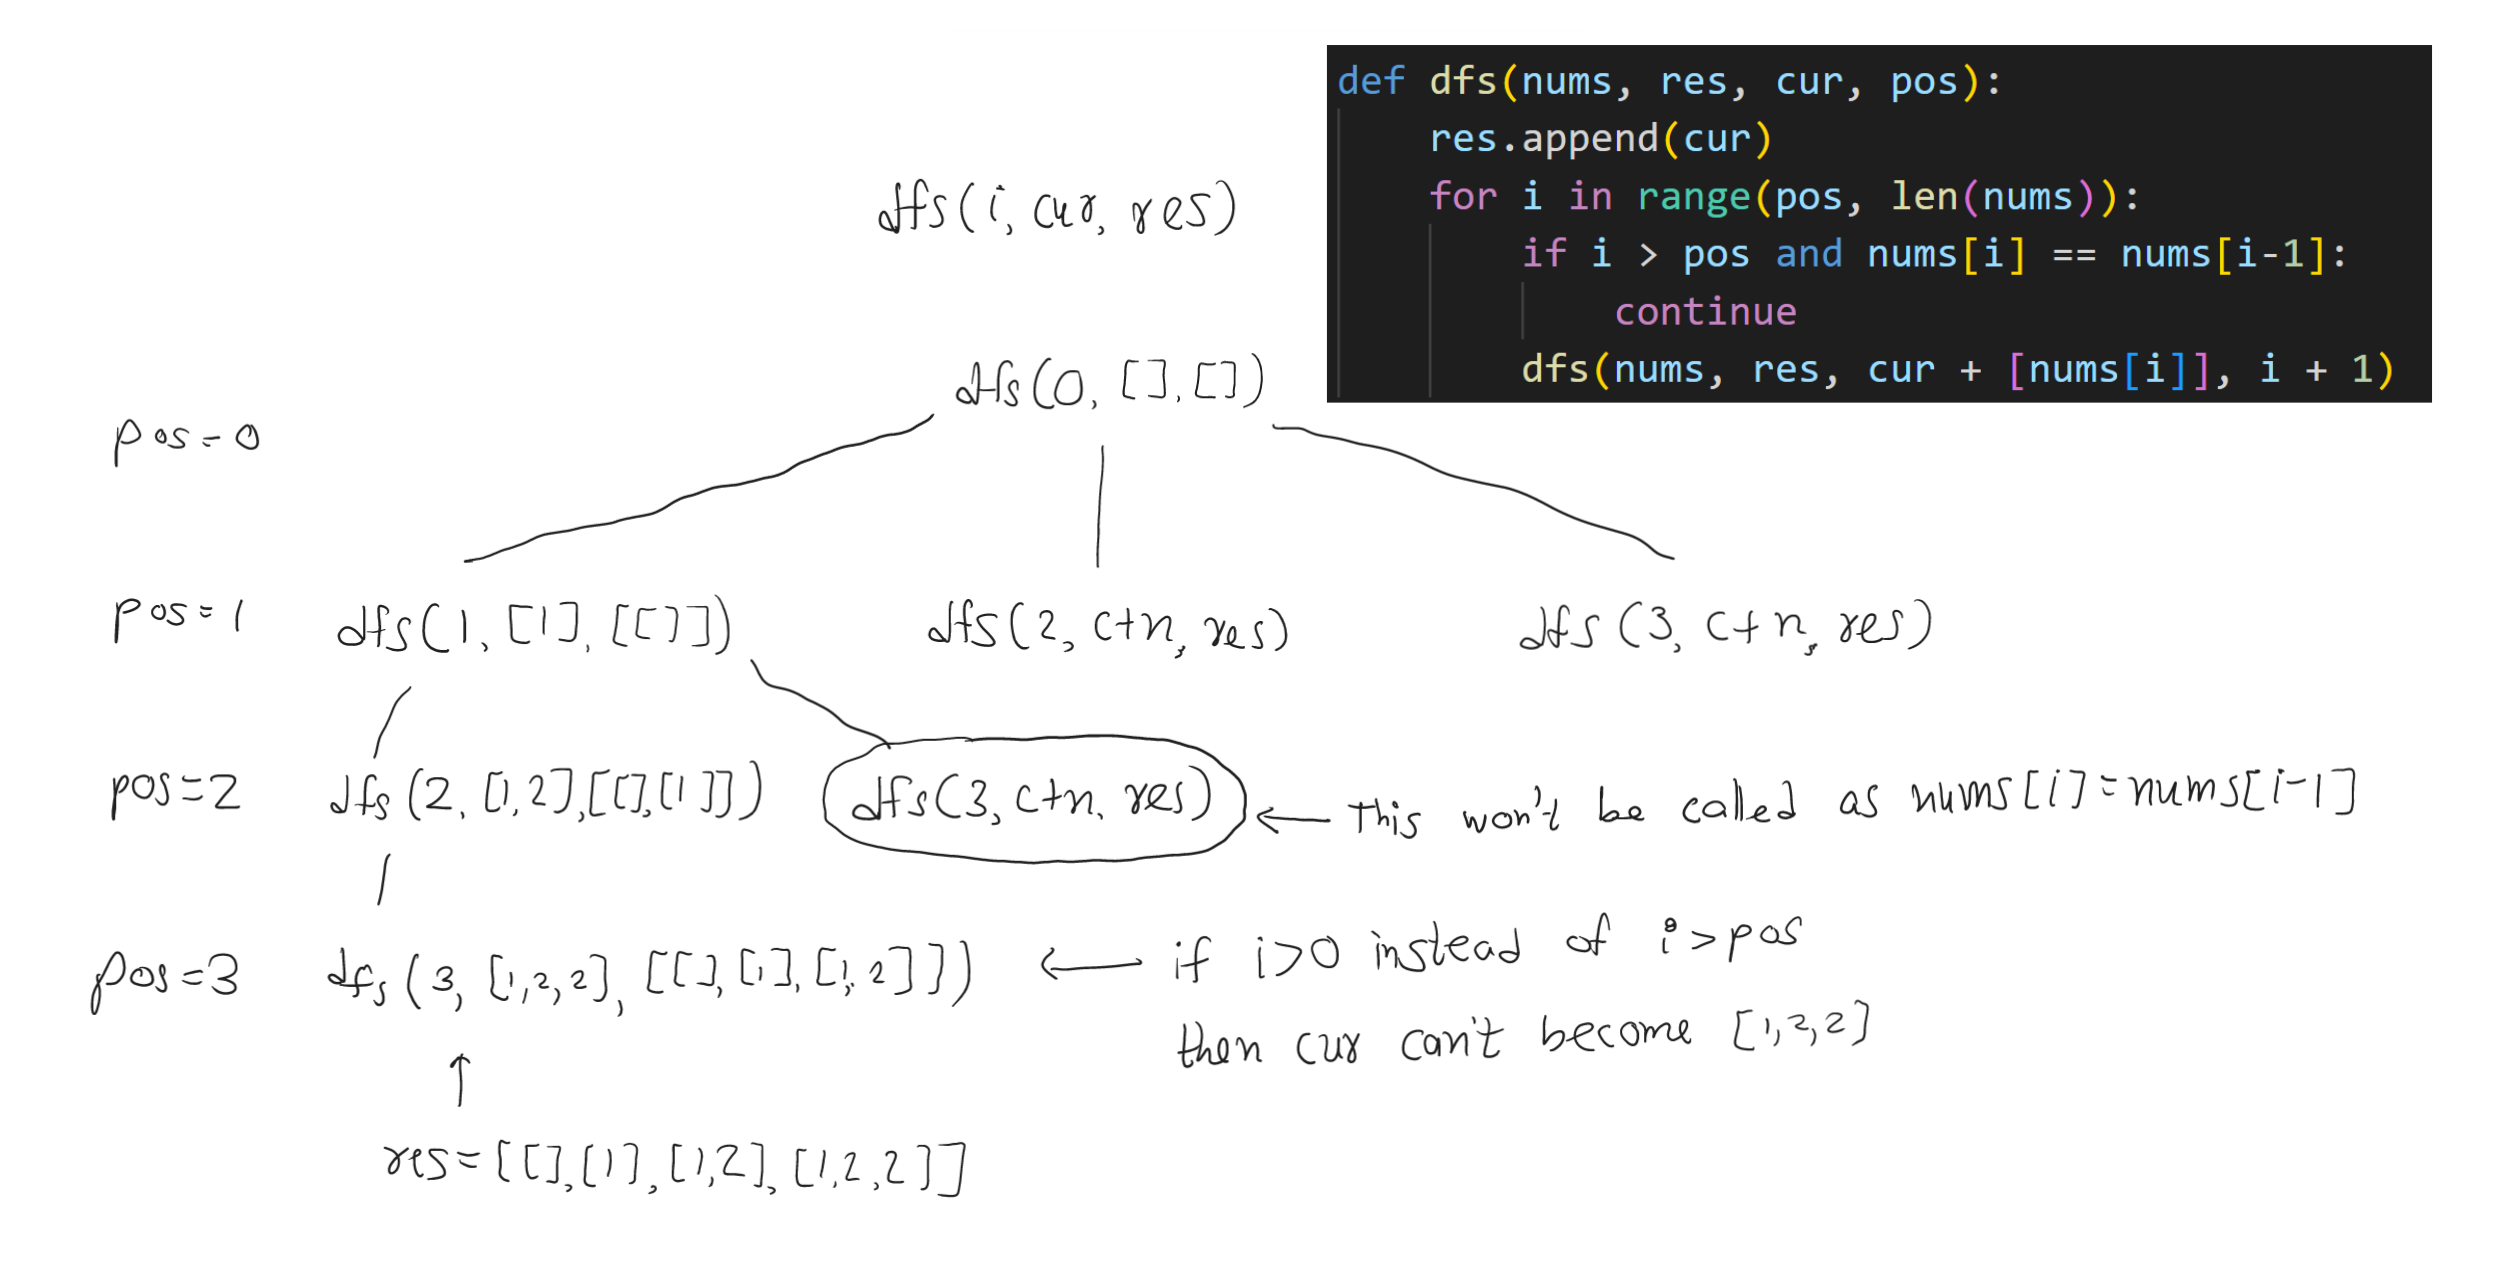 def dfs(nums, res, cur, pos):
    res.append(cur)
    for i in range(pos, len(nums)):
        if i > pos and nums[i] == nums[i-1]:
            continue
        dfs(nums, res, cur + [nums[i]], i + 1)
dfs(i, cur, res)
dfs(0, [], [])
pos=0
pos=1 dfs(1, [1], [[]]) dfs(2, c+n, res) dfs(3, c+n, res)
pos=2 dfs(2, [1,2],[[],[1]]) dfs(3, c+n, res) ← this won't be called as nums[i]=nums[i-1]
pos=3 dfs(3, [1,2,2], [[],[1],[1,2]]) ← if i>0 instead of i>pos
then cur can't become [1,2,2]
↑
res=[[],[1],[1,2],[1,2,2]]